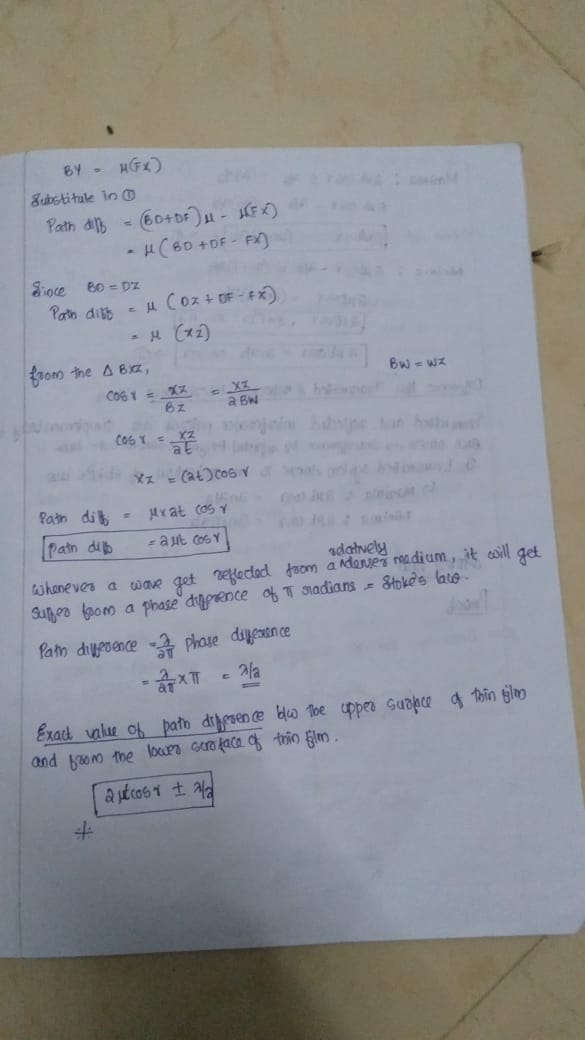 BY = μ(FX)
Substitute in ①
Path diff = (BD+DF)μ - μ(FX)
= μ(BD + DF - FX)
Since BD = DZ
Path diff = μ (DZ + DF - FX)
= μ (XZ)
from the Δ BXZ,
BW = WZ
cos r = XZ/BZ = XZ/2BW
cos r = XZ/2t
XZ = (2t) cos r
Path diff = μ x 2t cos r
Path diff = 2μt cos r
Whenever a wave get reflected from a relatively denser medium, it will get
suffer from a phase difference of π radians = Stoke's law.
Path difference = λ/2π phase difference
= λ/2π x π = λ/2
Exact value of path difference b/w the upper surface of thin film
and from the lower surface of thin film.
2μt cos r ± λ/2